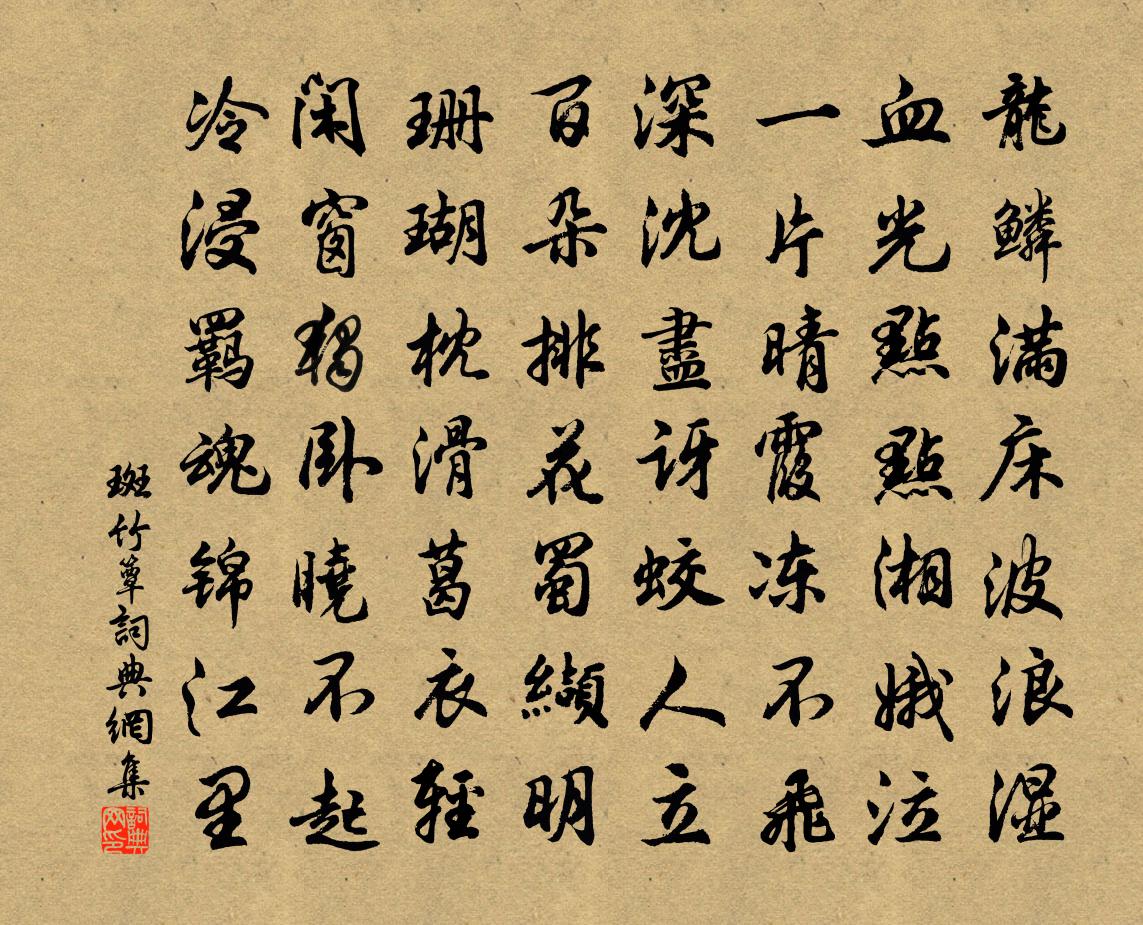 龍鱗满床波浪湿
血光點點湘娥泣
一片晴霞冻不飛
深沈盡讶蛟人立
百朵排花蜀纈明
珊瑚枕滑葛衣輕
闲窗独卧曉不起
冷浸羁魂锦江里
斑竹簟詞典網集
詞典网印